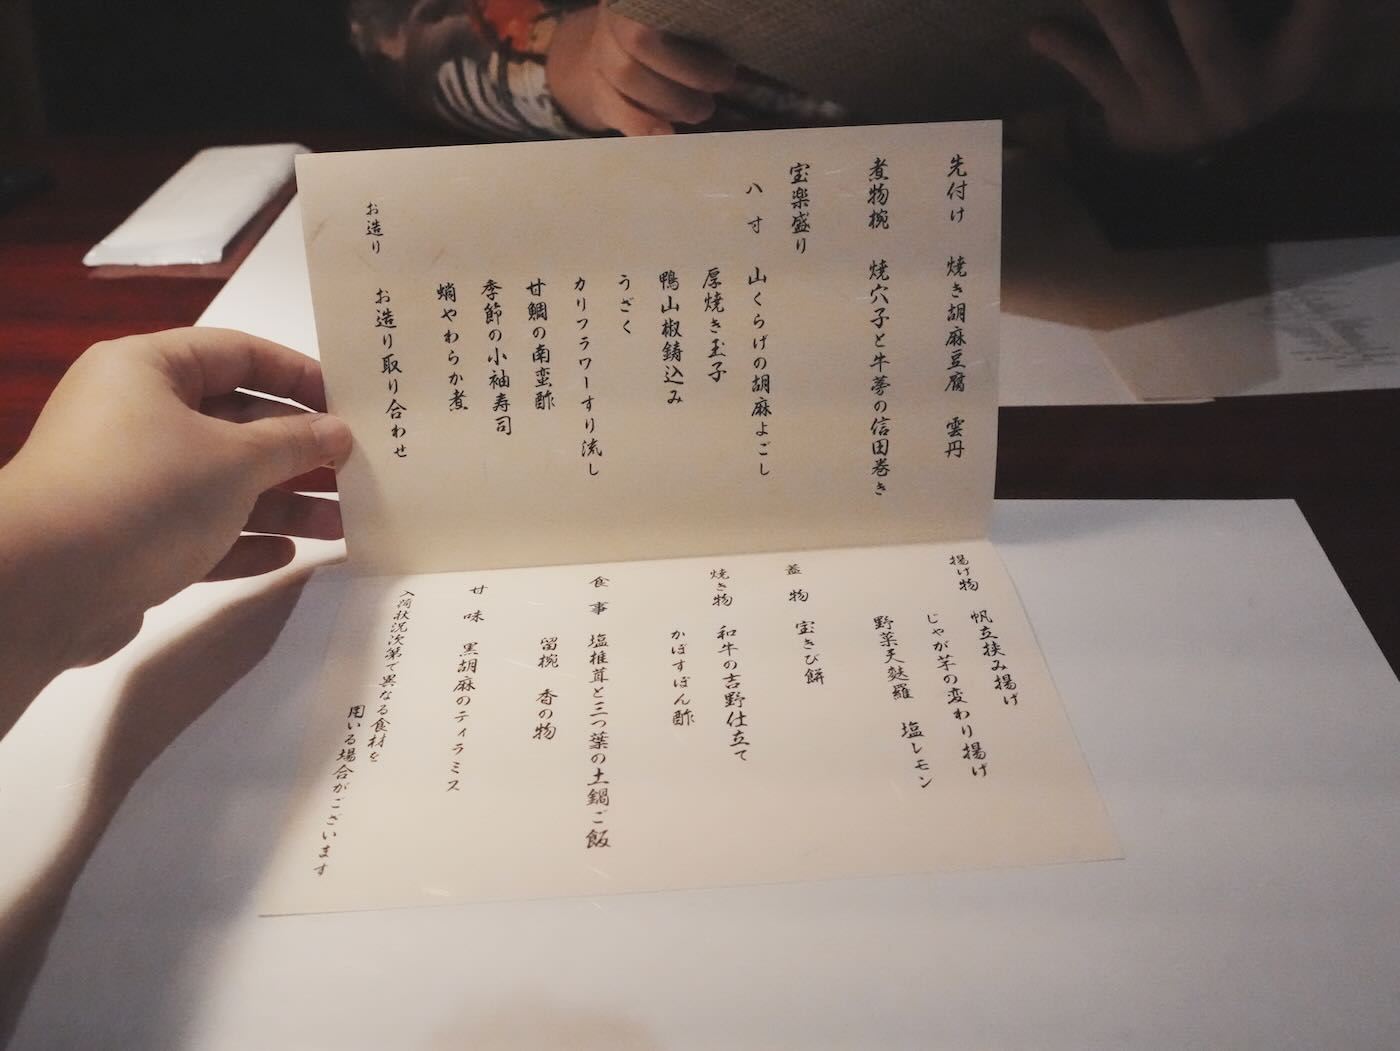 先付け 焼き胡麻豆腐 雲丹
煮物椀 焼穴子と牛蒡の信田巻き
宝楽盛り
八寸 山くらげの胡麻よごし
厚焼き玉子
鴨山椒鋳込み
うざく
カリフラワーすり流し
甘鯛の南蛮酢
季節の小袖寿司
蛸やわらか煮
お造り お造り取り合わせ
揚げ物 帆立挟み揚げ
じゃが芋の変わり揚げ
野菜天麩羅 塩レモン
蓋物 宝きび餅
焼き物 和牛の吉野仕立て
かぼすぽん酢
食事 塩椎茸と三つ葉の土鍋ご飯
留椀 香の物
甘味 黒胡麻のティラミス
入荷状況次第で異なる食材を
用いる場合がございます